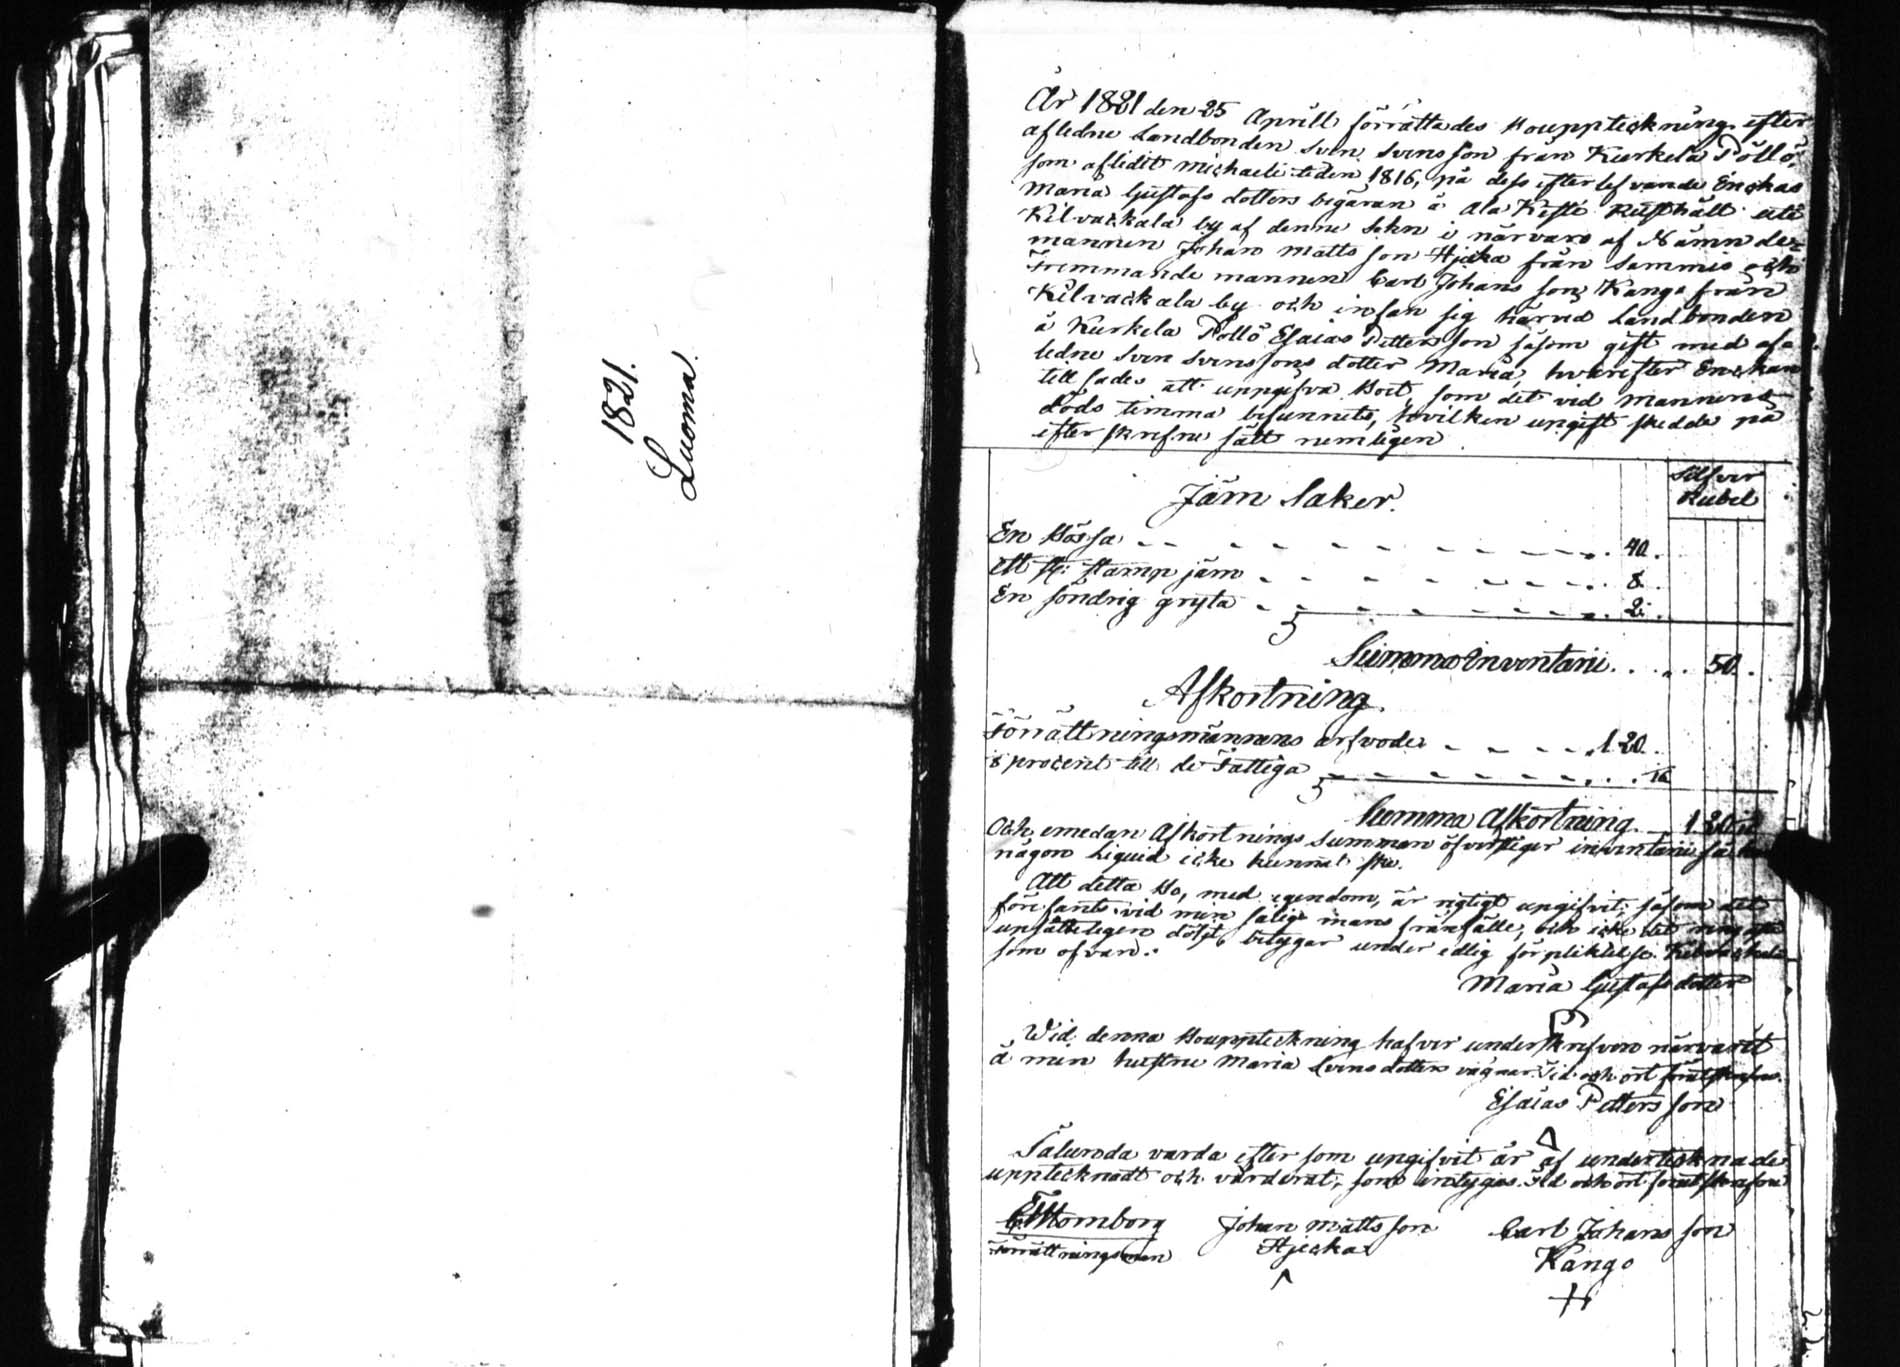 1821.
Luoma.
År 1821 den 25 Aprill förrättades Bouppteckning efter
afledne Landbonden Sven Svensson från Kurkela Pöllö,
som aflidit Michaeli tiden 1816, på dess efterlefvande Enckas
Maria Gustafs dotters begäran å Ala Kesti Rusthåll uti
Kilvackala by af denne Sokn i närvaro af Nämnde=
mannen Johan Matts son Hjecka från Sammis och
Fremmande mannen Carl Johans son Kango från
Kilvackala by och infan sig härvid Landbonden
å Kurkela Pöllö Esaias Petters son såsom gift med af=
ledne Sven Svenssons dotter Maria, hvarefter Enckan
till sades att uppgifva Boet, som det vid Mannens
döds timma befunnets, hvilken upgift skedde på
efter skrefne sätt nemligen
Silfver
Rubel
Järn Saker.
En Bössa . 40.
Ett st: stamp järn . 8.
En söndrig gryta . 2.
Summa Inventarii . . . . 50.
Afkortning
Förrättningsmännens arfvode . 1 20.
procent till de Fattiga
Summa Afkortning 1 20
Och emedan Afkortnings Summan öfverstiger inventarii så
någon Liquid icke kunnat ske.
Att detta Bo, med egendom, är rigtigt upgifvit, såsom det
före fants vid min salig mans frånfälle, och icke det ringaste
upsåteligen döljt, betygar under edlig förpliktelse. Kilvackala
som ofvan.
Maria Gustafs dotter
Wid denna Bouppteckning hafver underskrefven närvarit
å min hustru Maria Svens dotters vägnar. Tid och ort förutskrefne.
Esaias Petters son
Sålunda varda efter som upgifvit är af undertecknade
upptecknadt och värderat, som intygas. Tid och ort förut skrefne
Förrättningsman
Johan Matts son
Hjecka
Carl Johans son
Kango